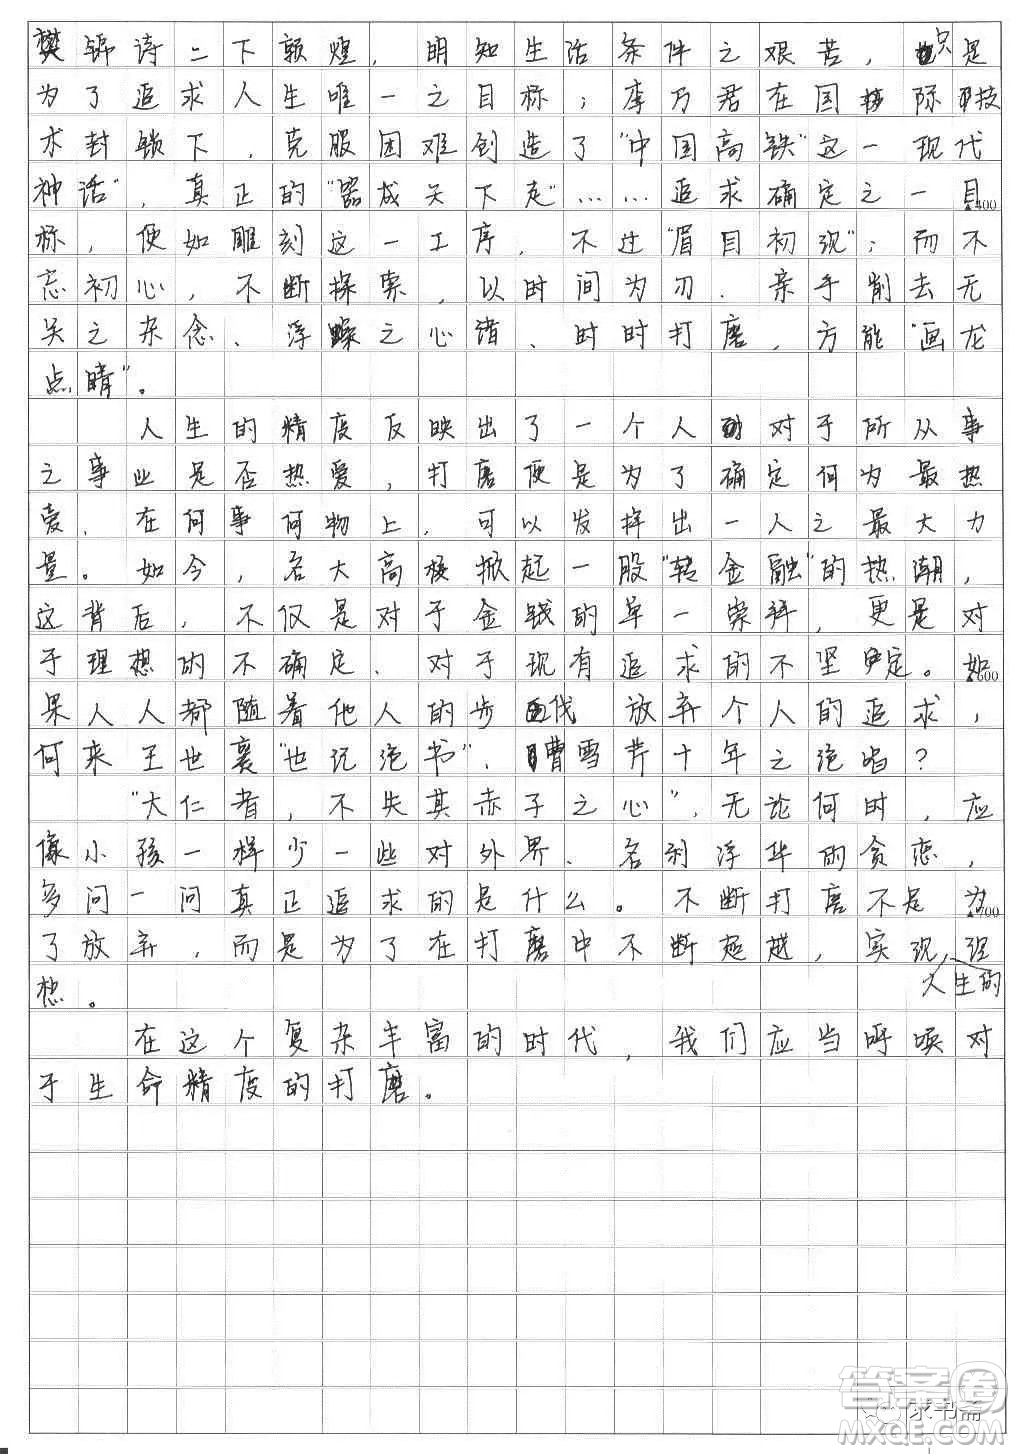 樊锦诗二下敦煌，明知生活条件之艰苦，只是
为了追求人生唯一之目标；李乃君在国际技
术封锁下，克服困难创造了“中国高铁”这一现代
神话”，真正的“器成天下走”……追求确定之一目
▲400
标，便如雕刻这一工序，不过“眉目初现”；而不
忘初心，不断探索，以时间为刃、亲手削去无
关之杂念、浮躁之心绪、时时打磨，方能“画龙
点睛”。
人生的精度反映出了一个人对于所从事
之事业是否热爱，打磨便是为了确定何为最热
爱、在何事何物上，可以发挥出一人之最大力
量。如今，名大高校掀起一股“转金融”的热潮，
这背后，不仅是对于金钱的单一崇拜，更是对
于理想的不确定、对于现有追求的不坚定。如
▲600
果人人都随着他人的步伐 放弃个人的追求，
何来王世襄“世纪绝书”、曹雪芹十年之绝唱？
“大仁者，不失其赤子之心”，无论何时，应
像小孩一样少一些对外界、名利浮华的贪恋，
多问一问真正追求的是什么。不断打磨不是为
▲700
了放弃，而是为了在打磨中不断超越，实现人生的理
想。
在这个复杂丰富的时代，我们应当呼唤对
于生命精度的打磨。
答案圈
求书斋
MXQE.COM